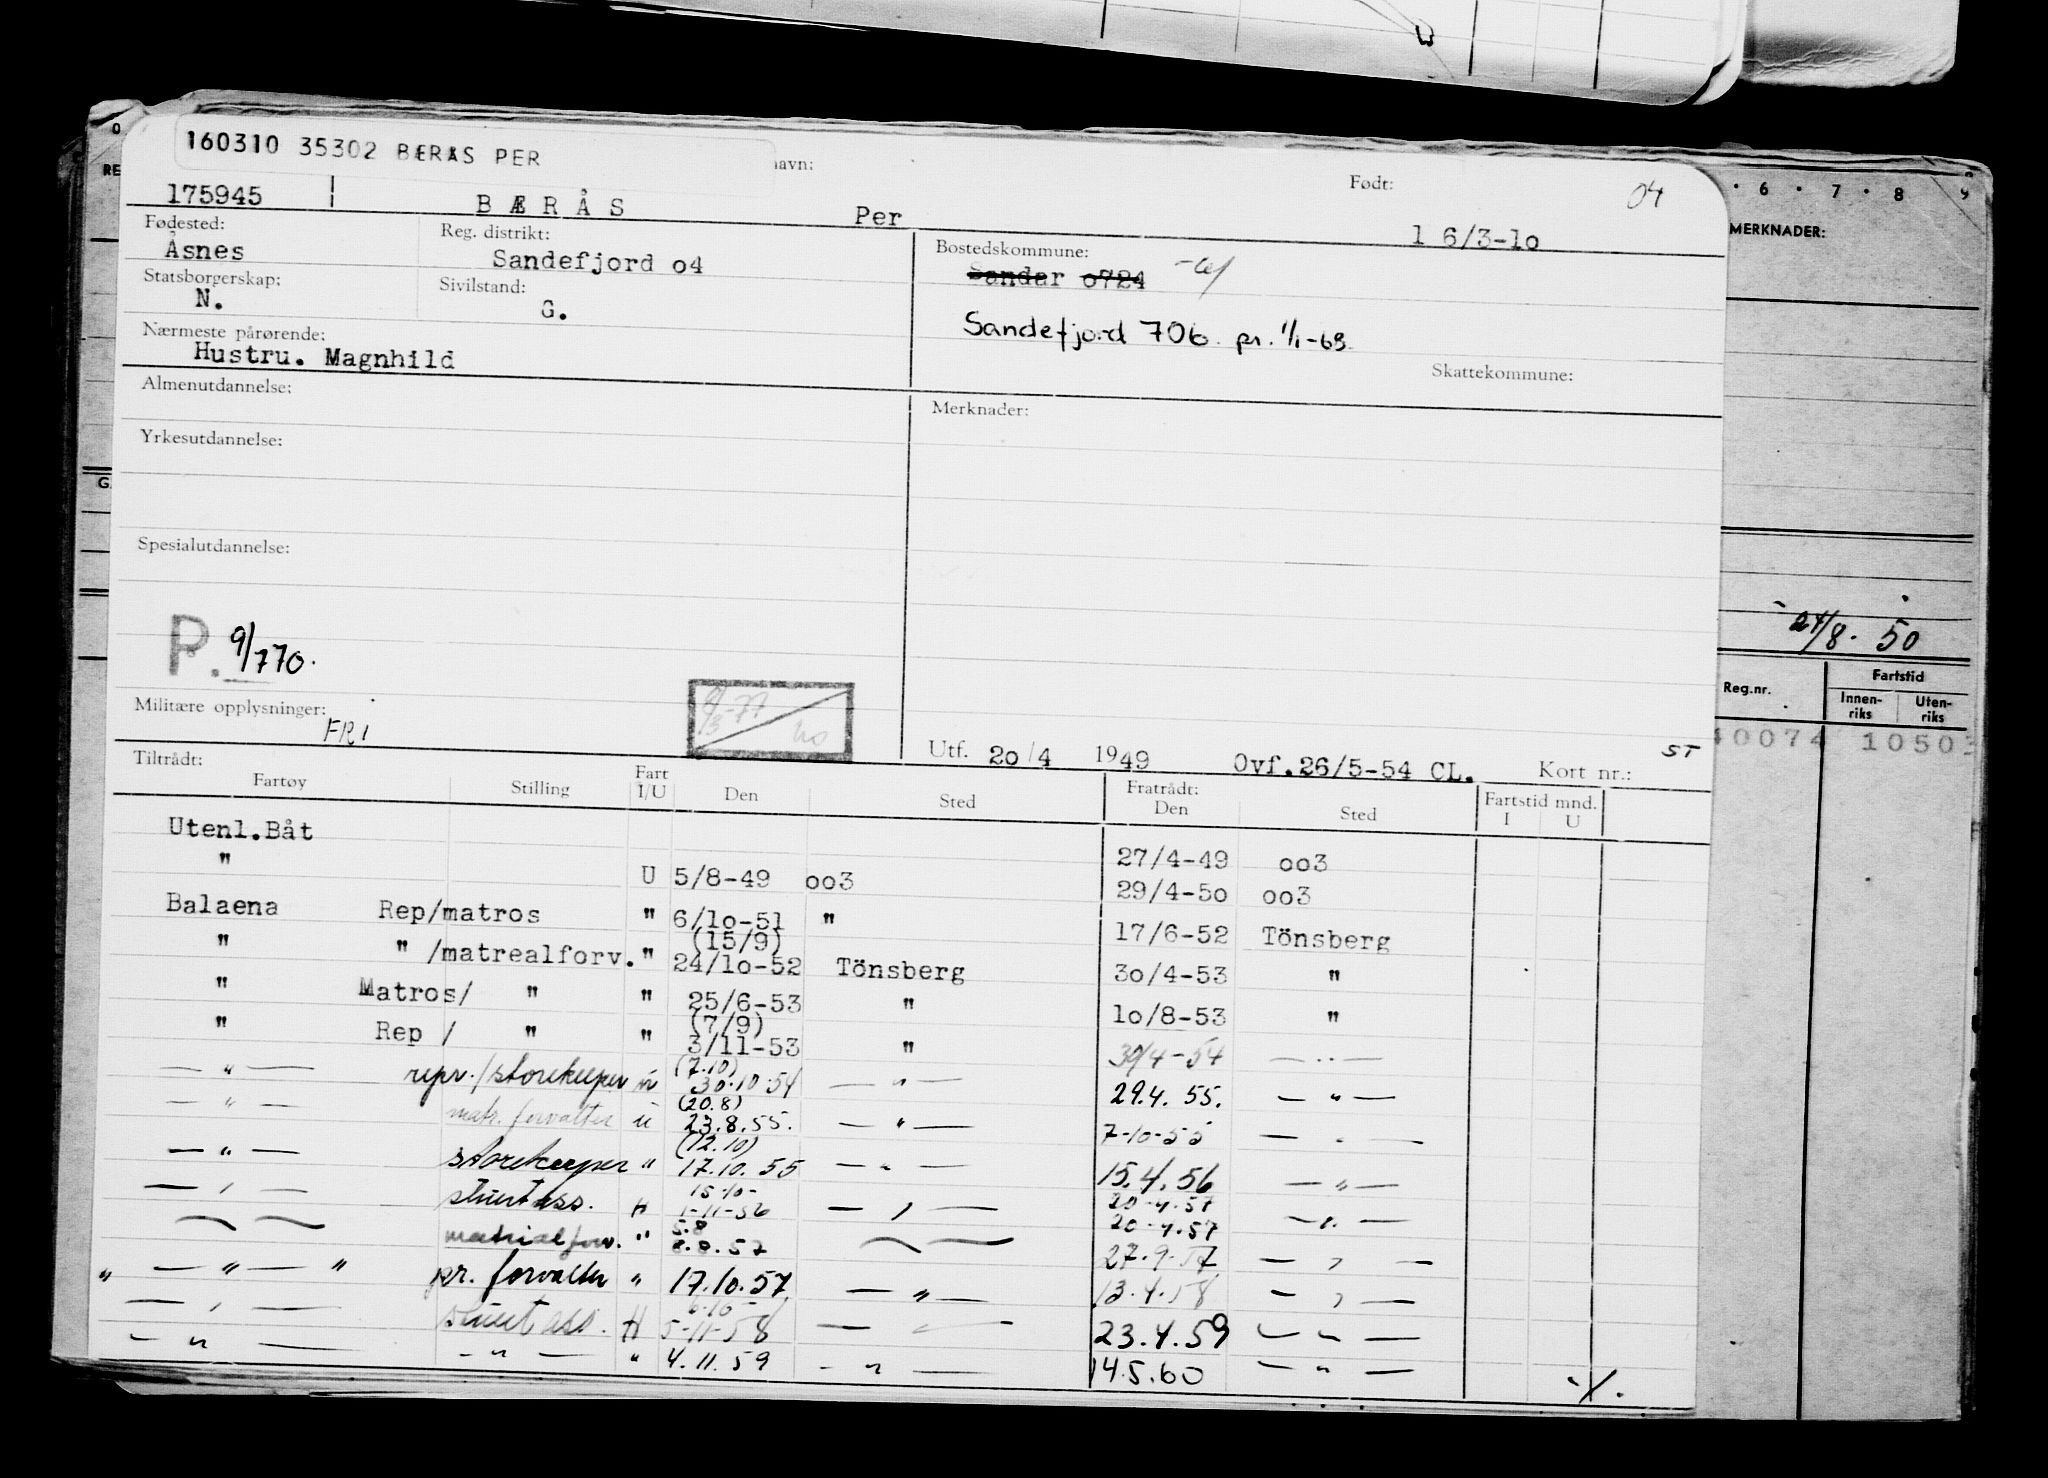 160310 35302 BÆRÅS PER
navn:
Født:
04
175945 BÆRÅS Per 1 6/3-1o
Fødested: Reg. distrikt: Bostedskommune:
Åsnes Sandefjord o4 Sandar o724
Statsborgerskap: Sivilstand:
N. G.
Sandefjord 706 pr. 1/1-68
Nærmeste pårørende:
Hustru. Magnhild
Skattekommune:
Almenutdannelse: Merknader:
Yrkesutdannelse:
Spesialutdannelse:
P. 9/770.
Militære opplysninger: FRI
Utf. 2o/4 1949 Ovf.26/5-54 CL. Kort nr.: ST
Tiltrådt: Fratrådt:
Fartøy Stilling Fart I/U Den Sted Den Sted Fartstid mnd. I U
Utenl.Båt 27/4-49 oo3
" U 5/8-49 oo3 29/4-5o oo3
Balaena Rep/matros " 6/1o-51 " 17/6-52 Tönsberg
(15/9)
" " /matrealforv. " 24/1o-52 Tönsberg 3o/4-53 "
" Matros/ " " 25/6-53 " 1o/8-53 "
(7/9)
" Rep / " " 3/11-53 " 30/4-54 — " —
(7.10)
— " — repr./storekeeper " 30.10.54 — " — 29.4.55. — " —
(20.8)
— " — matr. forvalter u 23.8.55. — " — 7-10-55 — " —
(12.10)
— " — storekeeper " 17.10.55 — " — 15.4.56 — " —
15-10- 20-4.57
— " — stuert ass. H 1-11-56 — " — 20-4.57 — " —
5.8
matrialforv. " 8.8.57 27.9.57 — " —
" — " — " pr. forvalter " 17.10.57 — " — 13.4.58 — " —
6-10-
— " — stuert ass. H 5-11-58 — " — 23.4.59 — " —
— " — — " — " 4.11.59 — " — 14.5.60 — " —
·/.
6 · 7 · 8 9
MERKNADER:
24/8. 50
Reg.nr. Fartstid
Innen-riks Uten-riks
40074 10503